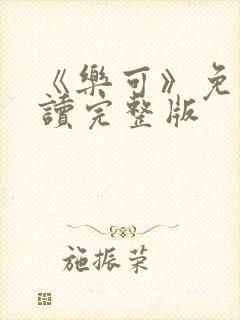 《樂可》免
讀完整版
施振荣